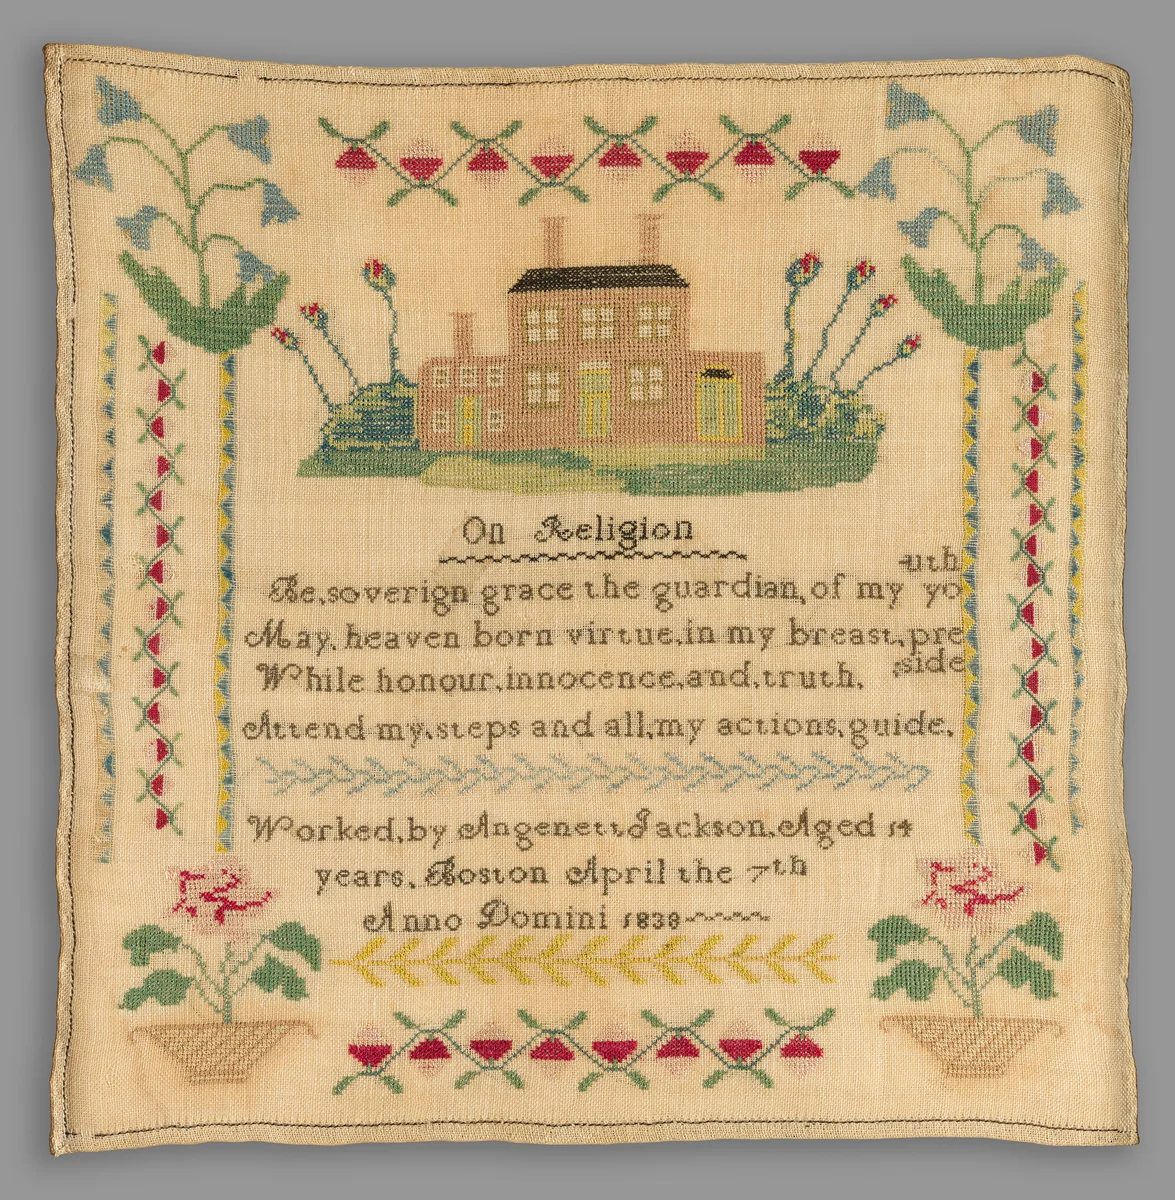 On Religion
Be,soverign grace the guardian,of my yo
uth
May,heaven born virtue,in my breast,pre
side
While honour,innocence,and,truth,
Attend my,steps and all,my actions,guide,
Worked,by Angenett,Jackson,Aged 14
years,Boston April the 7th
Anno Domini 1838